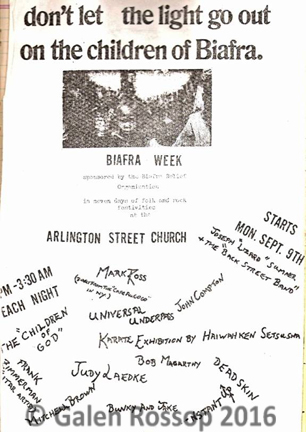 don't let the light go out
on the children of Biafra.
BIAFRA WEEK
sponsored by the Biafra Relief
Organization
in seven days of folk and rock
festivities
at the
ARLINGTON STREET CHURCH
STARTS
MON. SEPT. 9TH
JOSEPH "LIZARD" SUMMER
+ THE "BACK STREET BAND"
PM-3:30 AM
EACH NIGHT
MARK ROSS
IN NY.)
JOHN COMPTON
UNIVERSAL
UNDERPASS
"THE "CHILDREN
OF
GOD"
KARATE EXHIBITION BY HAIWAHKEN SETSUSHA
BOB MAGARTHY
FRANK
ZIMMERMAN
"STAR ARTIST"
JUDY LAEDKE
DEADSKIN
KITCHEN BROWN
BUNKY AND JAKE
INSTANT UP
© Galen Rossop 2016